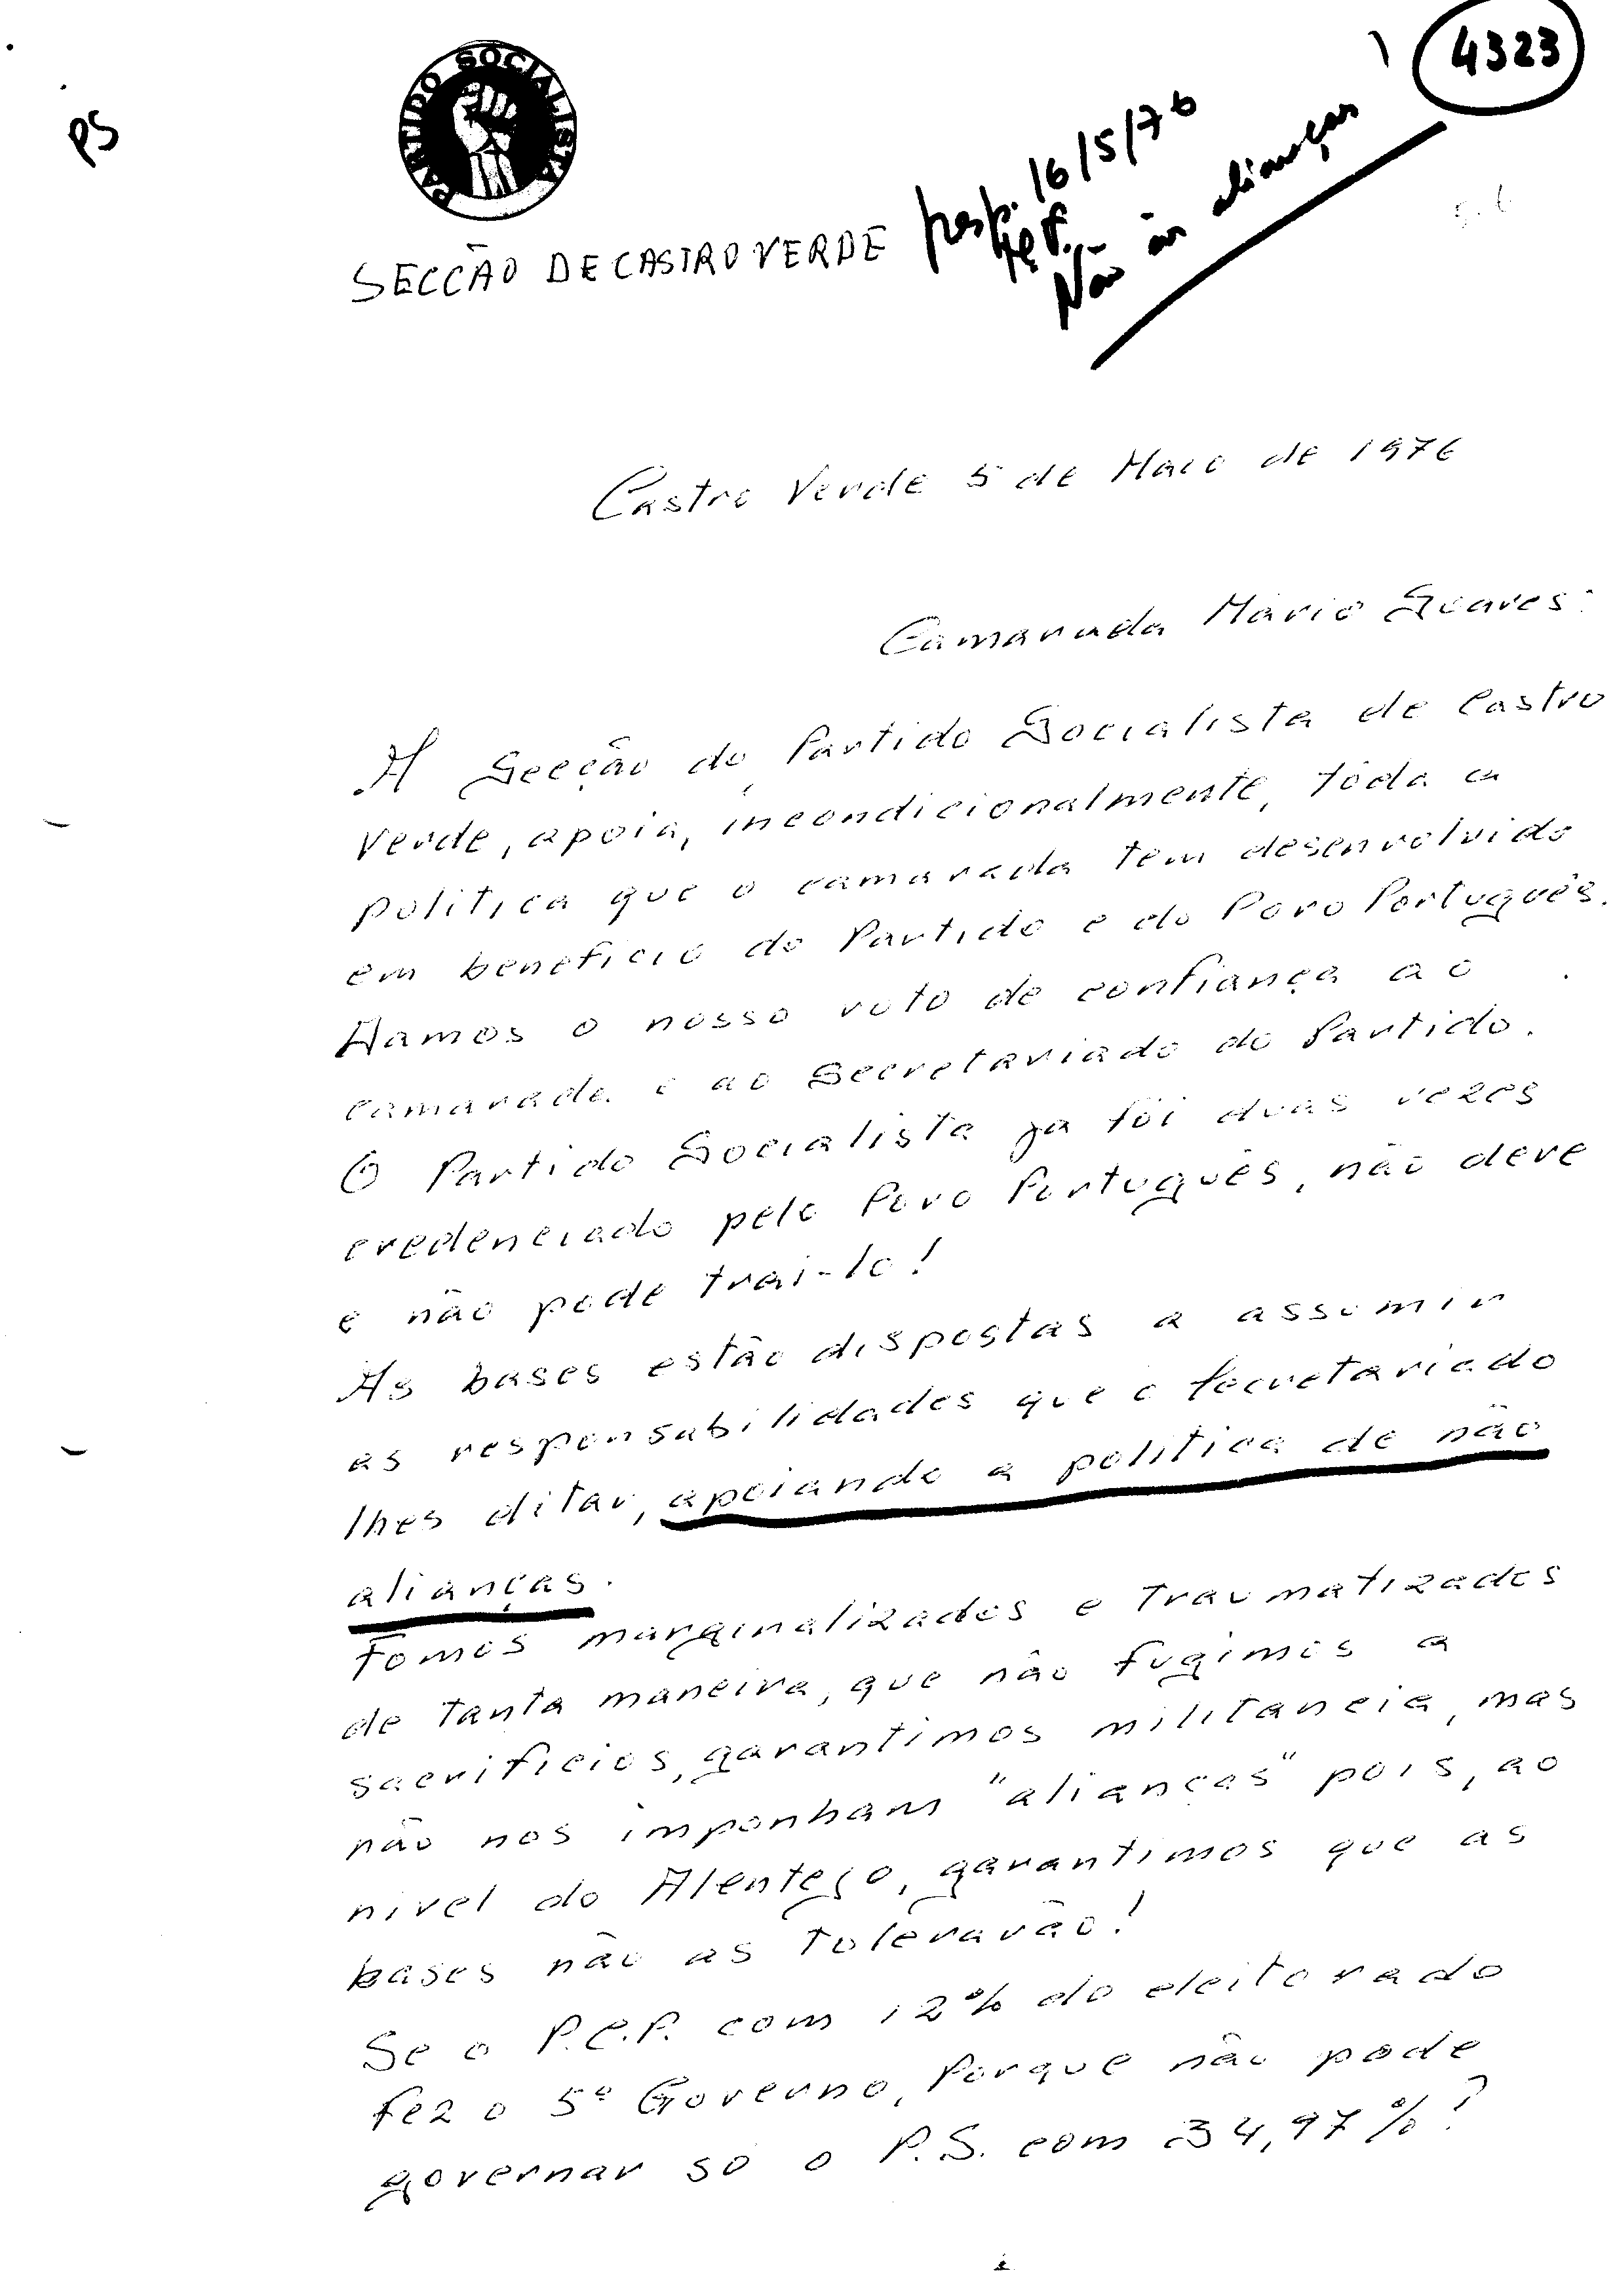 4323
PS
PARTIDO SOCIALISTA
16/5/76
Não às alianças
SECCÃO DE CASTRO VERDE
Castro Verde 5 de Maio de 1976
Camarada Mário Soares:
A Secção do Partido Socialista de Castro
Verde, apoia, incondicionalmente, tôda a
politica que o camarada tem desenvolvido
em beneficio do Partido e do Povo Português.
Damos o nosso voto de confiança ao
camarada e ao Secretariado do Partido.
O Partido Socialista ja foi duas vezes
credenciado pelo Povo Português, não deve
e não pode trai-lo!
As bases estão dispostas a assumir
as responsabilidades que o Secretariado
lhes ditar, apoiando a politica de não
alianças.
Fomos marginalizados e traumatizados
de tanta maneira, que não fugimos a
sacrificios, garantimos militancia, mas
não nos imponham "alianças" pois, ao
nivel do Alentejo, garantimos que as
bases não as tolerarão!
Se o P.C.P. com 12% do eleitorado
fez o 5º Governo, porque não pode
governar só o P.S. com 34,97%?